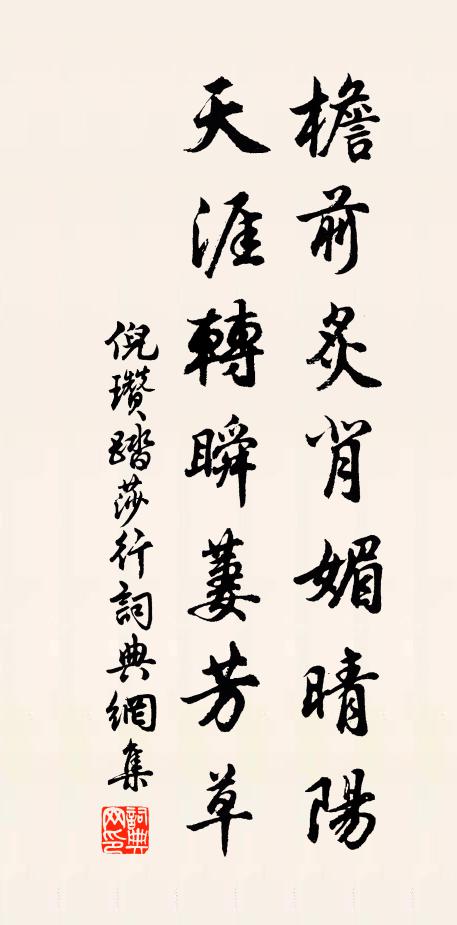 檐前炙背媚晴陽
天涯轉瞬萋芳草
倪瓚踏莎行詞典網集
詞典网印